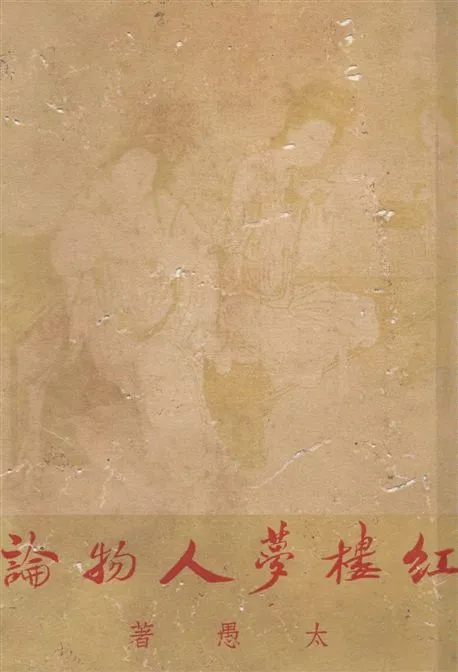 红樓夢人物論
太愚著